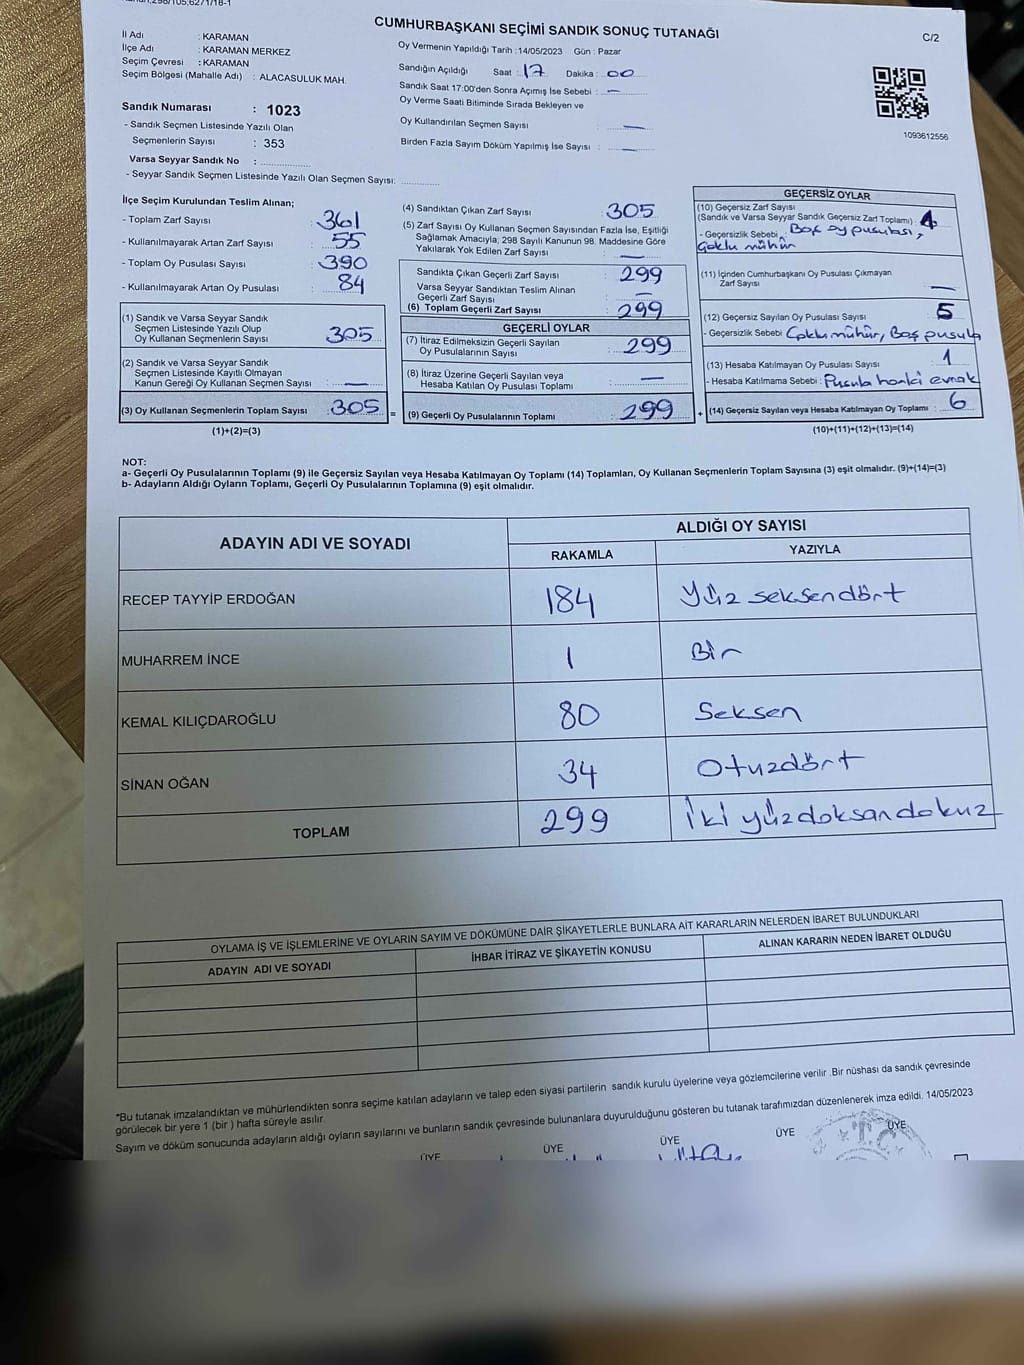 CUMHURBAŞKANI SEÇİMİ SANDIK SONUÇ TUTANAĞI
C/2
İl Adı : KARAMAN
İlçe Adı : KARAMAN MERKEZ
Seçim Çevresi : KARAMAN
Seçim Bölgesi (Mahalle Adı) : ALACASULUK MAH.
Sandık Numarası : 1023
- Sandık Seçmen Listesinde Yazılı Olan
Seçmenlerin Sayısı : 353
Varsa Seyyar Sandık No :
- Seyyar Sandık Seçmen Listesinde Yazılı Olan Seçmen Sayısı:
Oy Vermenin Yapıldığı Tarih :14/05/2023 Gün : Pazar
Sandığın Açıldığı Saat : 17 Dakika : 00
Sandık Saat 17:00'den Sonra Açımış İse Sebebi : —
Oy Verme Saati Bitiminde Sırada Bekleyen ve
Oy Kullandırılan Seçmen Sayısı : —
Birden Fazla Sayım Döküm Yapılmış İse Sayısı : —
1093612556
İlçe Seçim Kurulundan Teslim Alınan;
- Toplam Zarf Sayısı : 361
- Kullanılmayarak Artan Zarf Sayısı : 55
- Toplam Oy Pusulası Sayısı : 390
- Kullanılmayarak Artan Oy Pusulası : 84
(1) Sandık ve Varsa Seyyar Sandık
Seçmen Listesinde Yazılı Olup
Oy Kullanan Seçmenlerin Sayısı : 305
(2) Sandık ve Varsa Seyyar Sandık
Seçmen Listesinde Kayıtlı Olmayan
Kanun Gereği Oy Kullanan Seçmen Sayısı : —
(3) Oy Kullanan Seçmenlerin Toplam Sayısı : 305 =
(1)+(2)=(3)
(4) Sandıktan Çıkan Zarf Sayısı : 305
(5) Zarf Sayısı Oy Kullanan Seçmen Sayısından Fazla İse, Eşitliği
Sağlamak Amacıyla; 298 Sayılı Kanunun 98. Maddesine Göre
Yakılarak Yok Edilen Zarf Sayısı : —
Sandıkta Çıkan Geçerli Zarf Sayısı : 299
Varsa Seyyar Sandıktan Teslim Alınan
Geçerli Zarf Sayısı : —
(6) Toplam Geçerli Zarf Sayısı : 299
GEÇERLİ OYLAR
(7) İtiraz Edilmeksizin Geçerli Sayılan
Oy Pusulalarının Sayısı : 299
(8) İtiraz Üzerine Geçerli Sayılan veya
Hesaba Katılan Oy Pusulası Toplamı : —
(9) Geçerli Oy Pusulalarının Toplamı : 299 +
GEÇERSİZ OYLAR
(10) Geçersiz Zarf Sayısı
(Sandık ve Varsa Seyyar Sandık Geçersiz Zarf Toplamı) :
- Geçersizlik Sebebi : Boş oy pusulası,
Çoklu mühür
(11) İçinden Cumhurbaşkanı Oy Pusulası Çıkmayan
Zarf Sayısı : —
(12) Geçersiz Sayılan Oy Pusulası Sayısı : 5
- Geçersizlik Sebebi : Çoklu mühür, Boş pusula
(13) Hesaba Katılmayan Oy Pusulası Sayısı : 1
- Hesaba Katılmama Sebebi : Pusula harici evrak
(14) Geçersiz Sayılan veya Hesaba Katılmayan Oy Toplamı : 6
(10)+(11)+(12)+(13)=(14)
NOT:
a- Geçerli Oy Pusulalarının Toplamı (9) ile Geçersiz Sayılan veya Hesaba Katılmayan Oy Toplamı (14) Toplamları, Oy Kullanan Seçmenlerin Toplam Sayısına (3) eşit olmalıdır. (9)+(14)=(3)
b- Adayların Aldığı Oyların Toplamı, Geçerli Oy Pusulalarının Toplamına (9) eşit olmalıdır.
ADAYIN ADI VE SOYADI
ALDIĞI OY SAYISI
RAKAMLA YAZIYLA
RECEP TAYYİP ERDOĞAN 184 Yüz seksendört
MUHARREM İNCE 1 Bir
KEMAL KILIÇDAROĞLU 80 Seksen
SİNAN OĞAN 34 Otuzdört
TOPLAM 299 İki yüzdoksandokuz
OYLAMA İŞ VE İŞLEMLERİNE VE OYLARIN SAYIM VE DÖKÜMÜNE DAİR ŞİKAYETLERLE BUNLARA AİT KARARLARIN NELERDEN İBARET BULUNDUKLARI
ADAYIN ADI VE SOYADI İHBAR İTİRAZ VE ŞİKAYETİN KONUSU ALINAN KARARIN NEDEN İBARET OLDUĞU
*Bu tutanak imzalandıktan ve mühürlendikten sonra seçime katılan adayların ve talep eden siyasi partilerin sandık kurulu üyelerine veya gözlemcilerine verilir .Bir nüshası da sandık çevresinde
görülecek bir yere 1 (bir ) hafta süreyle asılır.
Sayım ve döküm sonucunda adayların aldığı oyların sayılarını ve bunların sandık çevresinde bulunanlara duyurulduğunu gösteren bu tutanak tarafımızdan düzenlenerek imza edildi. 14/05/2023
ÜYE ÜYE ÜYE ÜYE ÜYE
T.C.